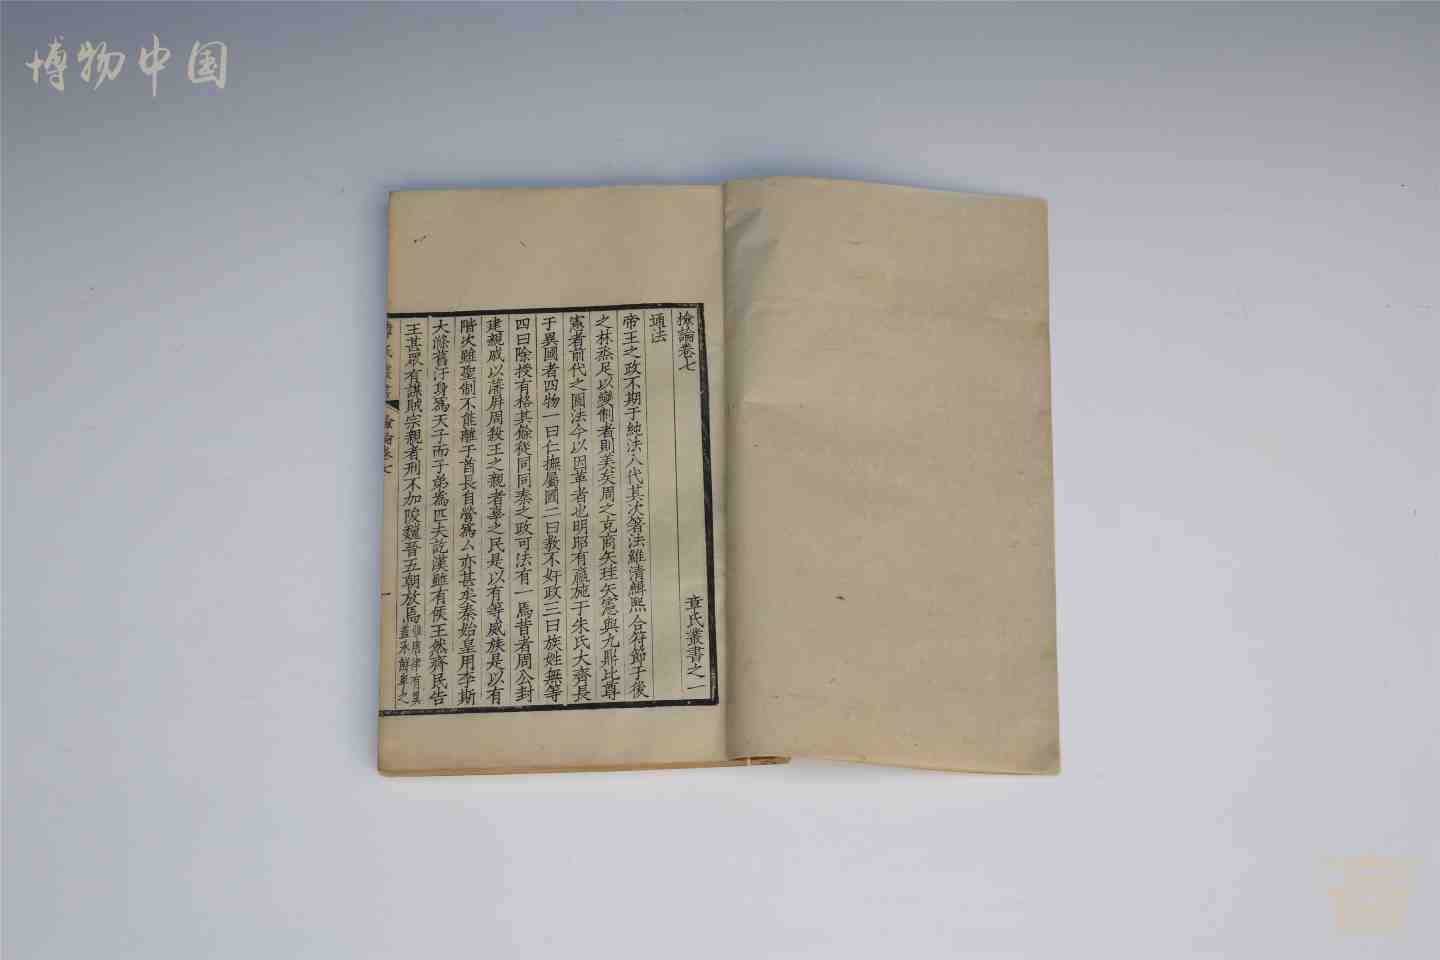 博物中国
檢論卷七
章氏叢書之一
通法
帝王之政不期于純法八代其次箸法維清緝熙合符節于後
之林烝足以變制者則美矣周之克商矢珪矢憲與九鼎比尊
憲者前代之圖法今以因革者也明昭有嬴施于朱氏大齊長
于異國者四物一曰仁撫屬國二曰教不奸政三曰族姓無等
四曰除授有格其餘從同同秦之政可法有一焉昔者周公封
建親戚以藩屛周殺王之親者辜之民是以有等威族是以有
階次雖聖制不能離于酋長自營爲厶亦甚矣秦始皇用李斯
大滌舊汙身爲天子而子弟爲匹夫訖漢雖有侯王然齊民告
王甚眾有謀賊宗親者刑不加陵魏晉五朝放焉
檢論卷七
一